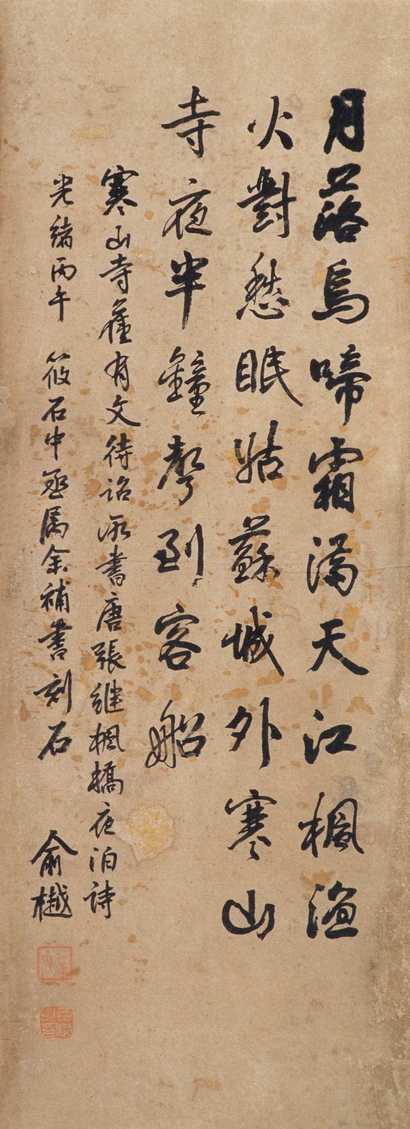 月落烏啼霜滿天江楓漁
火對愁眠姑蘇城外寒山
寺夜半鐘聲到客船
寒山寺舊有文待詔所書唐張繼楓橋夜泊詩
光緒丙午 筱石中丞屬余補書刻石 俞樾